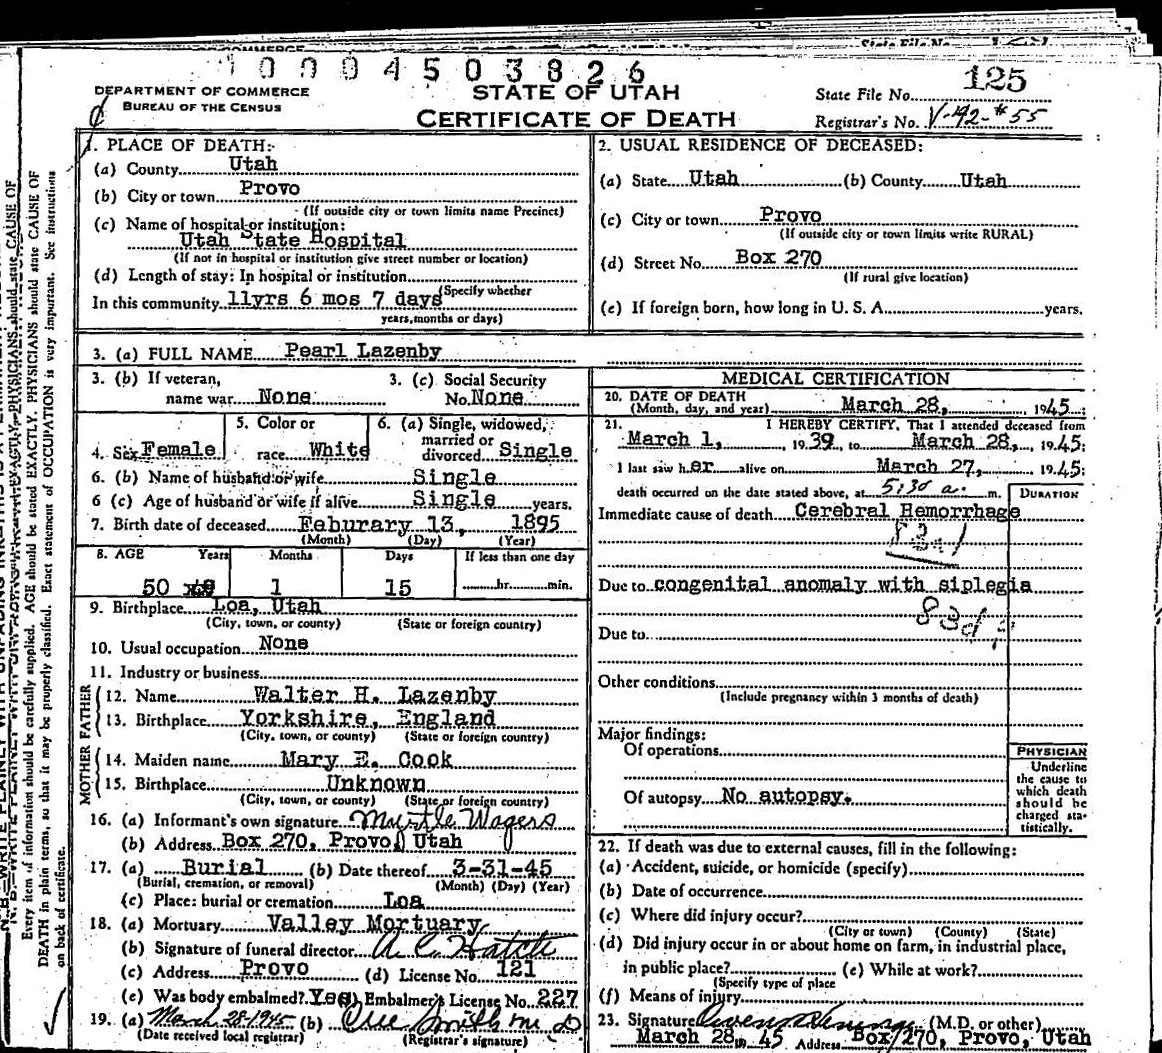 1 0 0 0 4 5 0 3 8 2 6
DEPARTMENT OF COMMERCE
BUREAU OF THE CENSUS
STATE OF UTAH
CERTIFICATE OF DEATH
State File No. 125
Registrar's No. V-42-#55
1. PLACE OF DEATH:
(a) County Utah
(b) City or town Provo
(If outside city or town limits name Precinct)
(c) Name of hospital or institution:
Utah State Hospital
(If not in hospital or institution give street number or location)
(d) Length of stay: In hospital or institution
(Specify whether
In this community 11yrs 6 mos 7 days
years, months or days)
2. USUAL RESIDENCE OF DECEASED:
(a) State Utah (b) County Utah
(c) City or town Provo
(If outside city or town limits write RURAL)
(d) Street No. Box 270
(If rural give location)
(e) If foreign born, how long in U. S. A. years.
3. (a) FULL NAME Pearl Lazenby
3. (b) If veteran,
name war None
3. (c) Social Security
No. None
4. Sex Female
5. Color or
race White
6. (a) Single, widowed,
married or
divorced Single
6. (b) Name of husband or wife Single
6 (c) Age of husband or wife if alive Single years.
7. Birth date of deceased Feburary 13, 1895
(Month) (Day) (Year)
8. AGE Years Months Days If less than one day
50 1 15 hr. min.
9. Birthplace Loa, Utah
(City, town, or county) (State or foreign country)
10. Usual occupation None
11. Industry or business
FATHER
12. Name Walter H. Lazenby
13. Birthplace Yorkshire, England
(City, town, or county) (State or foreign country)
MOTHER
14. Maiden name Mary E. Cook
15. Birthplace Unknown
(City, town, or county) (State or foreign country)
16. (a) Informant's own signature Myrtle Wagers
(b) Address Box 270, Provo, Utah
17. (a) Burial (b) Date thereof 3-31-45
(Burial, cremation, or removal) (Month) (Day) (Year)
(c) Place: burial or cremation Loa
18. (a) Mortuary Valley Mortuary
(b) Signature of funeral director A. C. Hatch
(c) Address Provo (d) License No. 121
(e) Was body embalmed? Yes Embalmer's License No. 227
19. (a) March 28-1945 (b)
(Date received local registrar) (Registrar's signature)
MEDICAL CERTIFICATION
20. DATE OF DEATH
(Month, day, and year) March 28, 1945;
21. I HEREBY CERTIFY, That I attended deceased from
March 1, 1939, to March 28, 1945;
I last saw her alive on March 27, 1945;
death occurred on the date stated above, at 5:30 a. m.
DURATION
Immediate cause of death Cerebral Hemorrhage
Due to congenital anomaly with siplegia
Due to
Other conditions
(Include pregnancy within 3 months of death)
Major findings:
Of operations
Of autopsy No autopsy.
PHYSICIAN
Underline
the cause to
which death
should be
charged sta-
tistically.
22. If death was due to external causes, fill in the following:
(a) Accident, suicide, or homicide (specify)
(b) Date of occurrence
(c) Where did injury occur?
(City or town) (County) (State)
(d) Did injury occur in or about home on farm, in industrial place,
in public place? (e) While at work?
(Specify type of place
(f) Means of injury
23. Signature (M.D. or other)
March 28, 45 Address Box 270, Provo, Utah
Every item of information should be carefully supplied. AGE should be stated EXACTLY. PHYSICIANS should state CAUSE OF
DEATH in plain terms, so that it may be properly classified. Exact statement of OCCUPATION is very important. See instructions
on back of certificate.